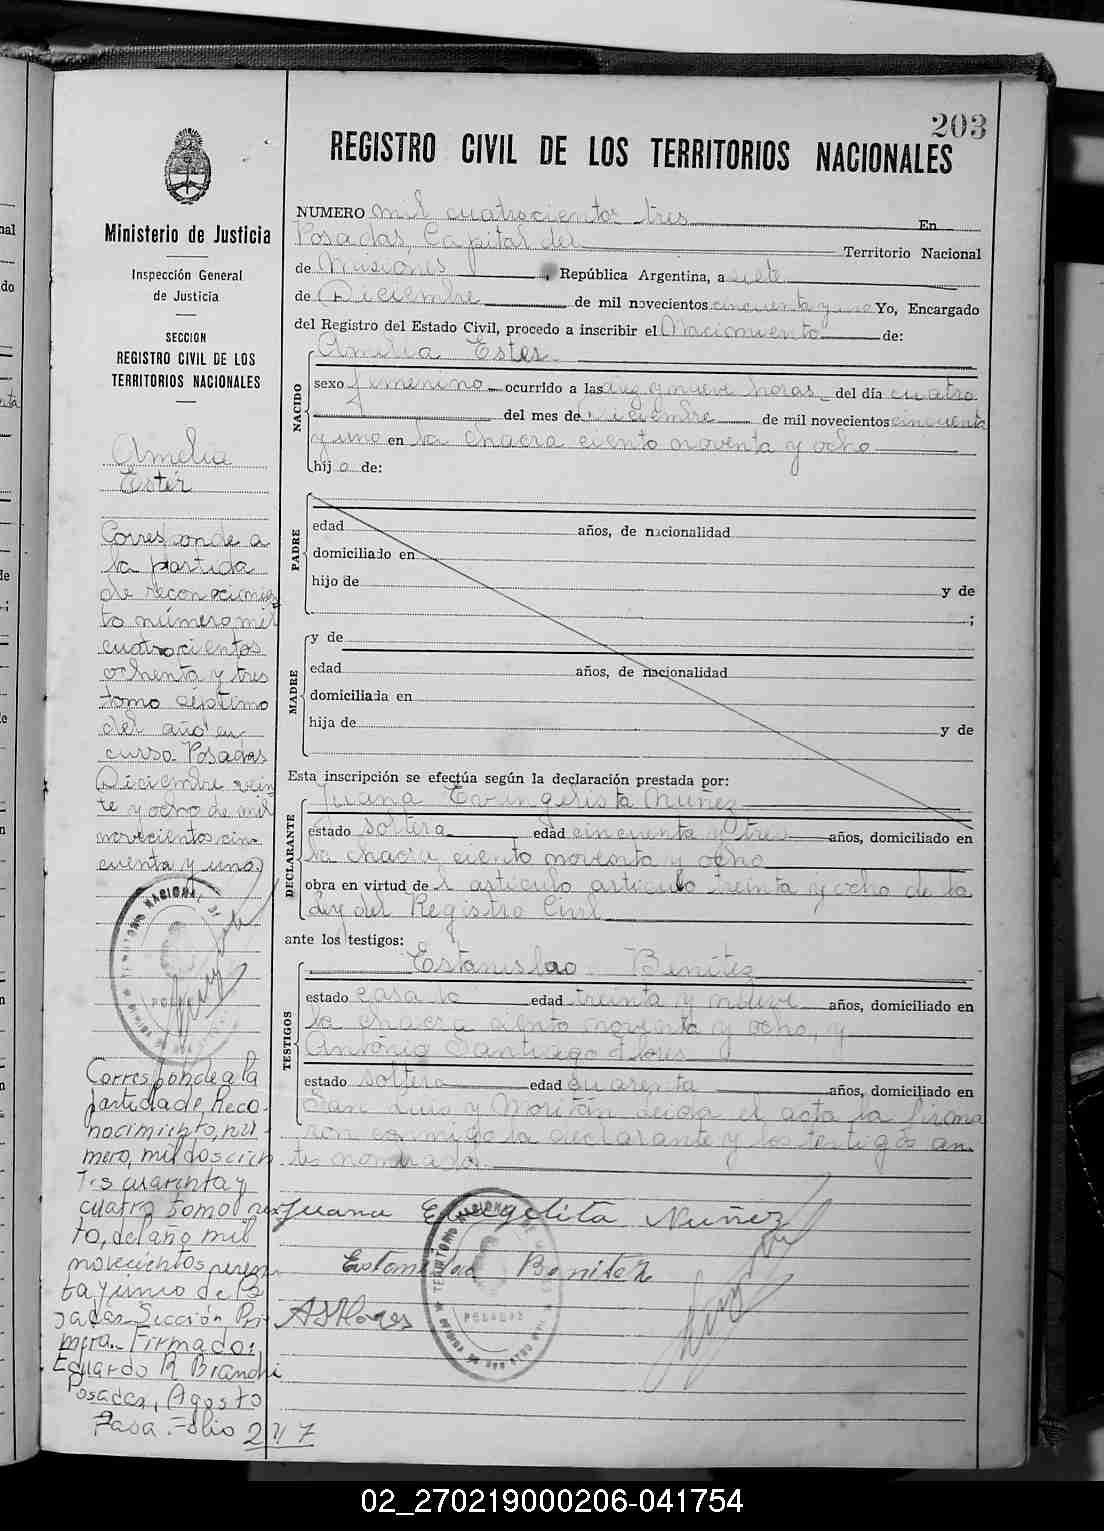 203
REGISTRO CIVIL DE LOS TERRITORIOS NACIONALES
Ministerio de Justicia
Inspección General
de Justicia
SECCION
REGISTRO CIVIL DE LOS
TERRITORIOS NACIONALES
Amelia
Ester
Corresponde a
la partida
de reconocimien
to número mil
cuatrocientos
ochenta y tres
tomo séptimo
del año en
curso. Posadas
Diciembre vein
te y ocho de mil
novecientos cin
cuenta y uno.
Corresponde a la
partida de Reco-
nocimiento, nú-
mero, mil doscien
tos cuarenta y
cuatro tomo
to, del año mil
novecientos
ta y uno de Po
sadas Sección Pri
mera. Firmado:
Eduardo R. Bianchi
Posadas, Agosto
Pasa Folio 247
NUMERO mil cuatrocientos tres En
Posadas Capital del Territorio Nacional
de Misiones, República Argentina, a siete
de Diciembre de mil novecientos cincuenta y uno Yo, Encargado
del Registro del Estado Civil, procedo a inscribir el Nacimiento de:
NACIDO
Amelia Ester
sexo femenino ocurrido a las diez y nueve horas del día cuatro
del mes de Diciembre de mil novecientos cincuenta
y uno en la chacra ciento noventa y ocho
hij a de:
PADRE
edad años, de nacionalidad
domiciliado en
hijo de y de
;
MADRE
y de
edad años, de nacionalidad
domiciliada en
hija de y de
Esta inscripción se efectúa según la declaración prestada por:
DECLARANTE
Juana Evangelista Nuñez
estado soltera edad cincuenta y tres años, domiciliado en
la chacra ciento noventa y ocho
obra en virtud de l artículo artículo treinta y ocho de la
Ley del Registro Civil
ante los testigos:
TESTIGOS
Estanislao Benítez
estado casado edad treinta y nueve años, domiciliado en
la chacra ciento noventa y ocho, y
Antonio Santiago Flores
estado soltero edad cuarenta años, domiciliado en
San Luis y Moritán Leída el acta la firma
ron conmigo la declarante y los testigos an
tes nombrados
Juana Evangelita Nuñez
Estanislao Benitez
ASFlores
TERRITORIO NACIONAL
POSADAS
02_270219000206-041754